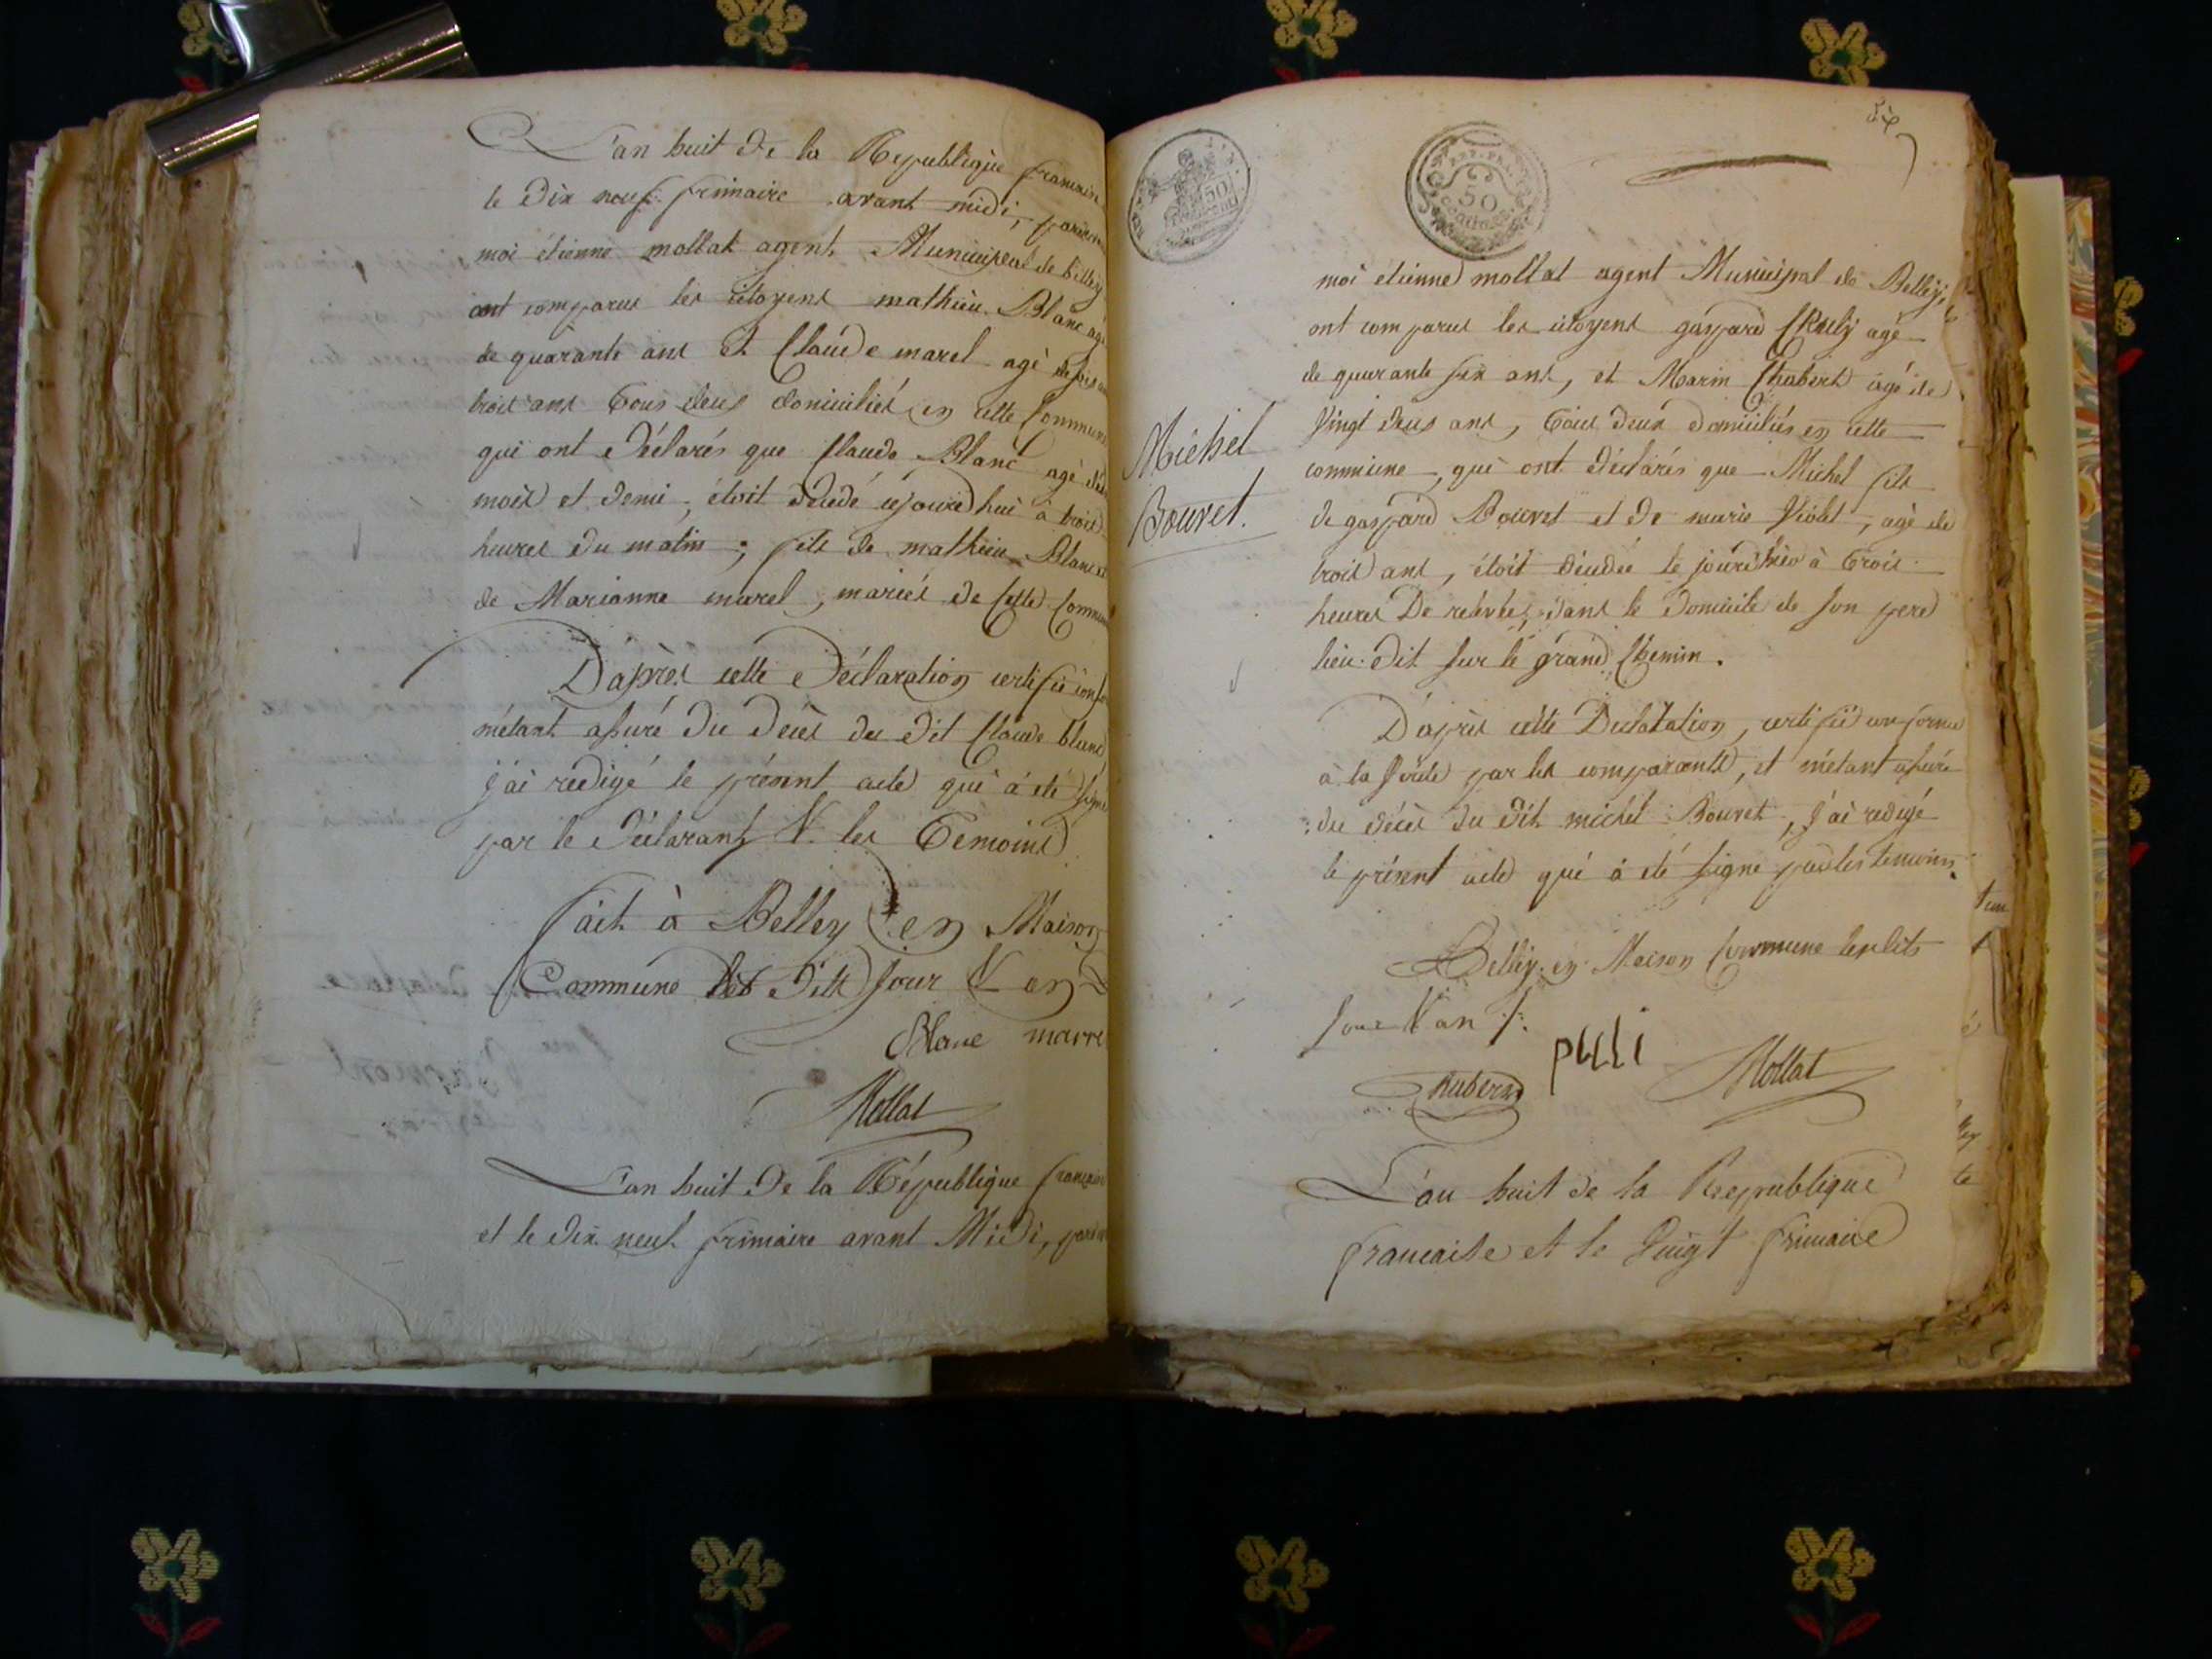 L'an huit de la Republique francaise
le dix neuf frimaire avant midi, pardevant
moi étienne mollat agent Municipal de Belley
ont comparus les citoyens mathieu Blanc agé
de quarante ans et Claude marel agé de
trois ans tous deux domiciliés en cette Commune
qui ont déclarés que Claude Blanc agé
mois et demi, étoit décédé cejourd'hui à trois
heures du matin ; fils de mathieu Blanc et
de Marianne marel, mariés de Cette Commune
D'aprés cette déclaration certifié
métant assuré du décès du dit Claude blanc
j'ai redigé le présent acte qui à été signé
par le déclarant & les Temoins
fait à Belley en Maison
Commune les dits Jour & an
Blanc marrel
Mollat
L'an huit de la République francaise
et le dix neuf frimaire avant Midi, pardevant
50
REP. FRA.
50
centimes
moi etienne mollat agent Municipal de Belley,
ont comparus les citoyens gaspard agé
de quarante six ans, et Marin Chabert agé de
Vingt deux ans, tous deux domiciliés en cette
commune, qui ont déclarés que Michel fils
Michel
Bouvet.
de gaspard Bouvet et de marie Violet, agé de
trois ans, étoit décédé le jourd'hier à trois
heures De relevée, dans le domicile de son pere
lieu dit sur le grand Chemin.
D'après cette Declaration, certifié conforme
à la Verité par les comparants, et métant assuré
du décès du dit michel Bouvet, j'ai redigé
le présent acte qui à été signé par les temoins.
Belley en Maison Commune les dits
Jour & an
Mollat
L'an huit de la Republique
francaise et le Vingt frimaire